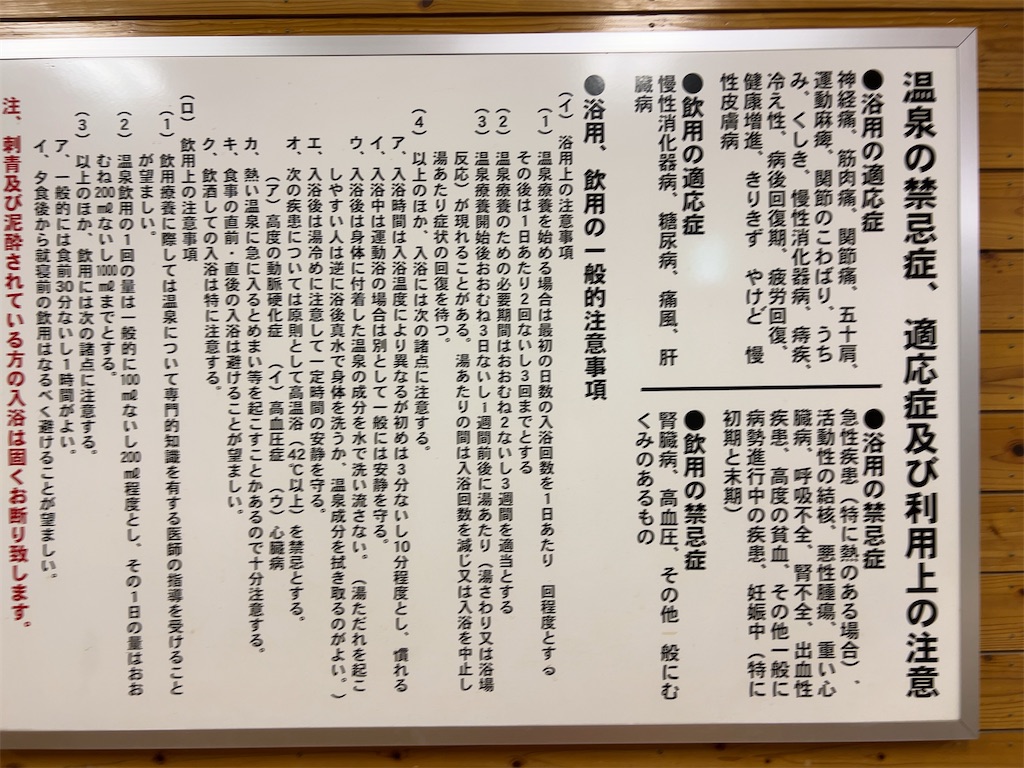 温泉の禁忌症、適応症及び利用上の注意
●浴用の適応症
神経痛、筋肉痛、関節痛、五十肩、
運動麻痺、関節のこわばり、うち
み、くじき、慢性消化器病、痔疾、
冷え性、病後回復期、疲労回復、
健康増進、きりきず やけど 慢
性皮膚病
●飲用の適応症
慢性消化器病、糖尿病、痛風、肝
臓病
●浴用の禁忌症
急性疾患（特に熱のある場合）、
活動性の結核、悪性腫瘍、重い心
臓病、呼吸不全、腎不全、出血性
疾患、高度の貧血、その他一般に
病勢進行中の疾患、妊娠中（特に
初期と末期）
●飲用の禁忌症
腎臓病、高血圧、その他一般にむ
くみのあるもの
●浴用、飲用の一般的注意事項
（イ）浴用上の注意事項
（1）温泉療養を始める場合は最初の日数の入浴回数を1日あたり 回程度とする
その後は1日あたり2回ないし3回までとする
（2）温泉療養のための必要期間はおおむね2ないし3週間を適当とする
（3）温泉療養開始後おおむね3日ないし1週間前後に湯あたり（湯さわり又は浴場
反応）が現れることがある。湯あたりの間は入浴回数を減じ又は入浴を中止し
湯あたり症状の回復を待つ。
（4）以上のほか、入浴には次の諸点に注意する。
ア、入浴時間は入浴温度により異なるが初めは3分ないし10分程度とし、慣れる
イ、入浴中は運動浴の場合は別として一般には安静を守る。
ウ、入浴後は身体に付着した温泉の成分を水で洗い流さない。（湯ただれを起こ
しやすい人は逆に浴後真水で身体を洗うか、温泉成分を拭き取るのがよい。）
エ、入浴後は湯冷めに注意して一定時間の安静を守る。
オ、次の疾患については原則として高温浴（42℃以上）を禁忌とする。
（ア）高度の動脈硬化症 （イ）高血圧症 （ウ）心臓病
カ、熱い温泉に急に入るとめまい等を起こすことかあるので十分注意する。
キ、食事の直前・直後の入浴は避けることが望ましい。
ク、飲酒しての入浴は特に注意する。
（ロ）飲用上の注意事項
（1）飲用療養に際しては温泉について専門的知識を有する医師の指導を受けること
が望ましい。
（2）温泉飲用の1回の量は一般的に100㎖ないし200㎖程度とし、その1日の量はおお
むね200㎖ないし1000㎖までとする。
（3）以上のほか、飲用には次の諸点に注意する。
ア、一般的には食前30分ないし1時間がよい。
イ、夕食後から就寝前の飲用はなるべく避けることが望ましい。
注、刺青及び泥酔されている方の入浴は固くお断り致します。